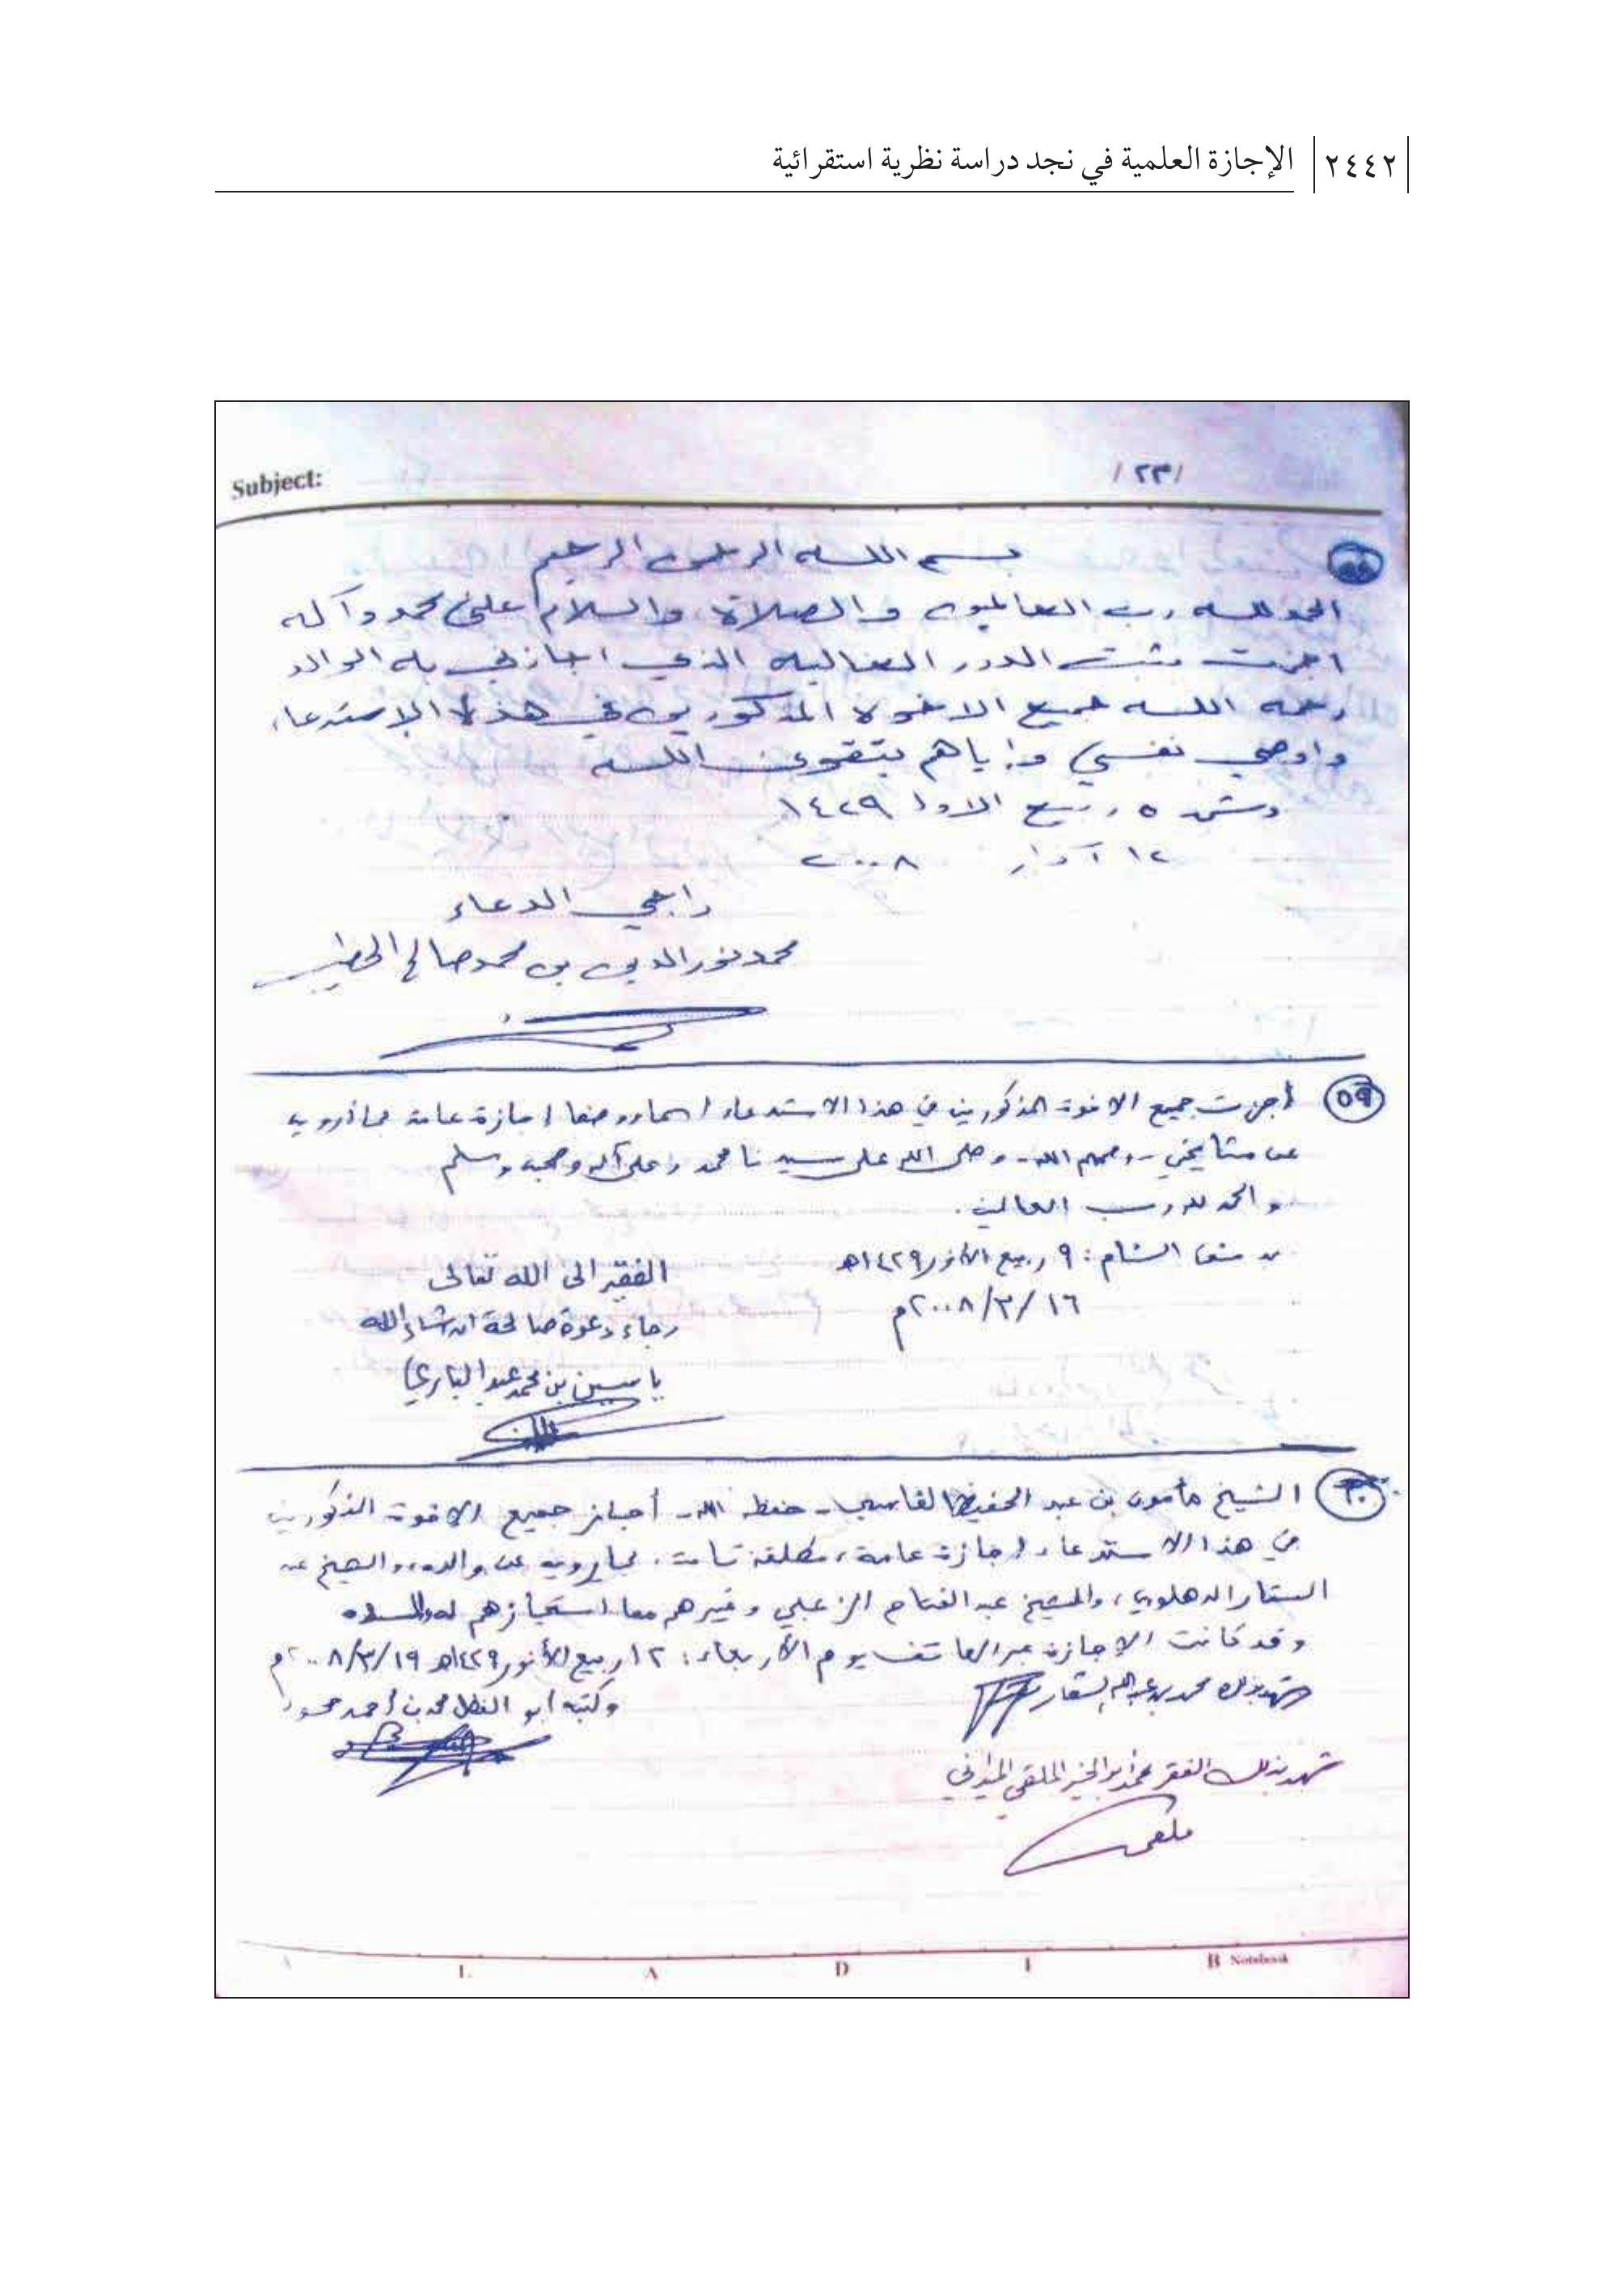 ٢٤٤٢ الإجازة العلمية في نجد دراسة نظرية استقرائية
/ ٢٣ /
Subject:
بسم اللـه الرحمن الرحيم
الحمد للـه رب العالمين والصلاة والسلام على محمد وآله
اجزت بثبت الدرر الغاليه الذي اجازني به الوالد
رحمه اللـه جميع الاخوة المذكورين في هذا الإستدعاء
واوصي نفسي وإياهم بتقوى اللـه
دمشق ٥ ربيع الاول ١٤٢٩
١٢ آذار ٢٠٠٨
راجي الدعاء
محمد نور الدين بن محمد صالح الخطيب
٥٩ أجزت جميع الاخوة المذكورين في هذا الاستدعاء إجازة عامة بما أرويه
عن مشايخي - رحمهم الله - وصلى الله على سيدنا محمد وعلى آله وصحبه وسلم
والحمد لله رب العالمين.
دمشق الشام: ٩ ربيع الأنور ١٤٢٩هـ
١٦/٣/٢٠٠٨م
الفقير الى الله تعالى
رجاء دعوة صالحة ان شاء الله
ياسين بن محمد عبد الباري
٦٠ الشيخ مأمون بن عبد الحفيظ القاسمي - حفظه الله - أجاز جميع الاخوة المذكورين
في هذا الاستدعاء إجازة عامة، مطلقة تامة، بما يرويه عن والده، والشيخ عبد
الستار الدهلوي، والشيخ عبد الفتاح الزعبي وغيرهم مما استجازهم له والده
وقد كانت الإجازة عبر الهاتف يوم الأربعاء: ١٢ ربيع الأنور ١٤٢٩هـ ١٩/٣/٢٠٠٨م
شهد بذلك محمد بن عبد الله الشعار
وكتبه أبو الفضل محمد بن أحمد
شهد بذلك الفقير محمد أبو الخير الملقي الميداني
ملقي
L A D I B Notebook